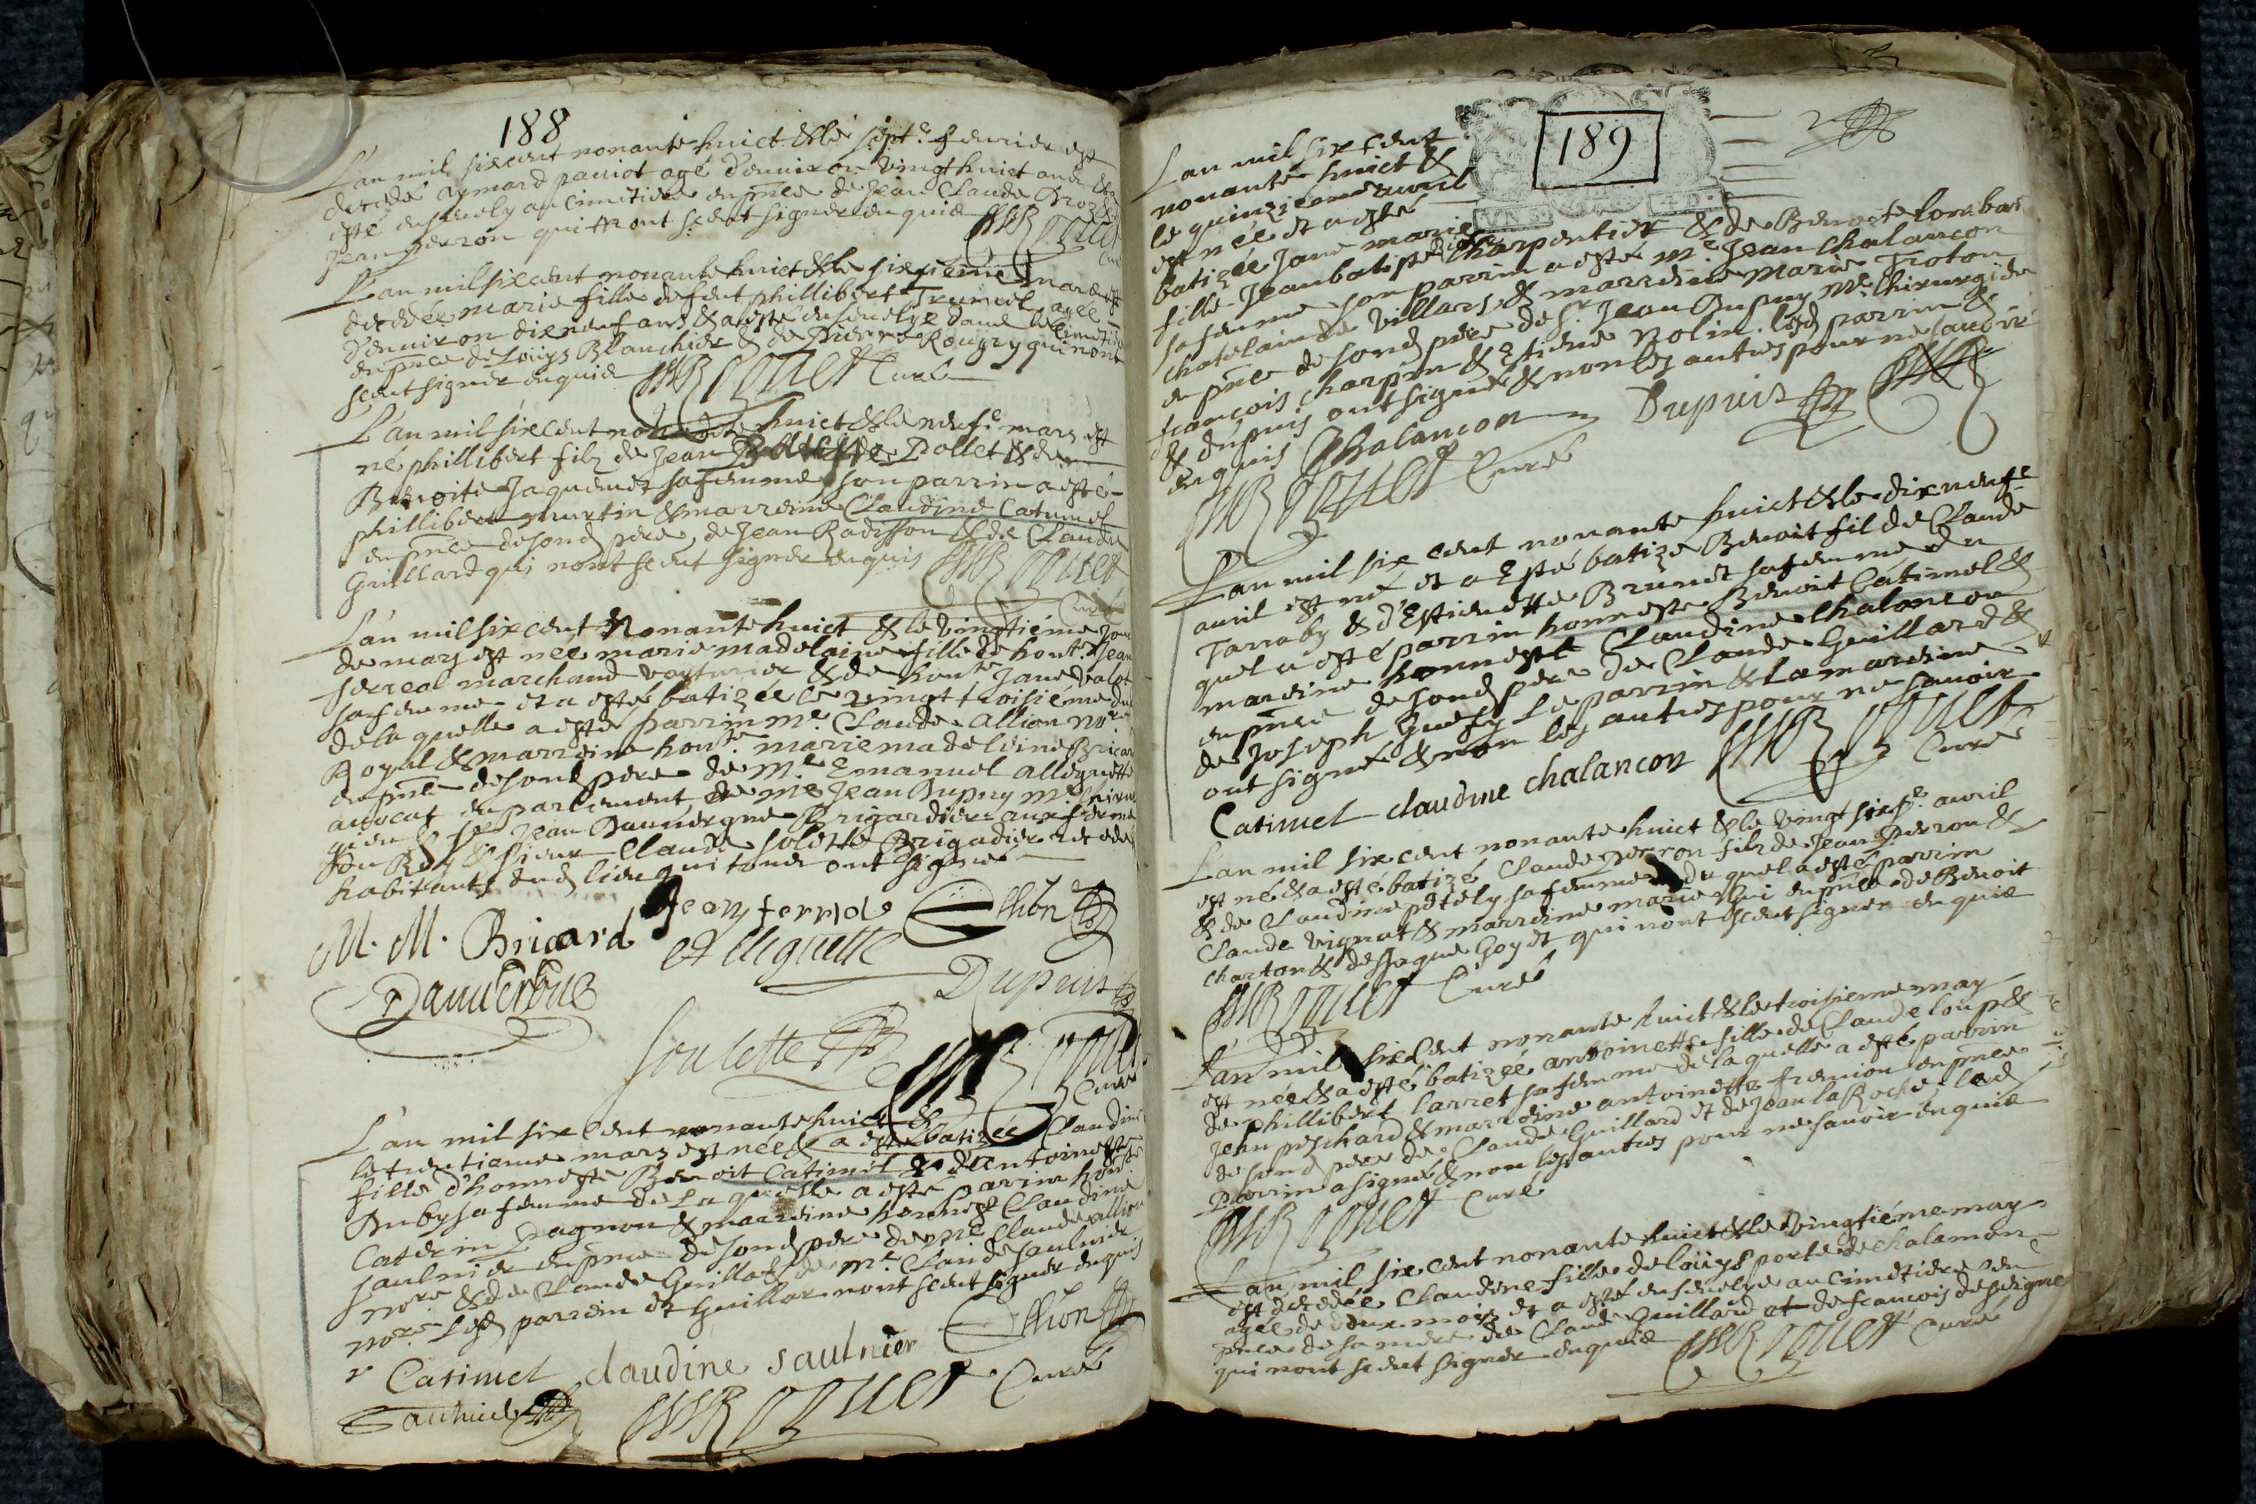 188
L'an mil sixcent nonante huict & le sept.e feurier est
decedé aymard pauiot agé d'enuiron vingt huict ans & a
esté enseuely au cimitiere en pnce de Jean Claude
Jean perron qui nont sceut signer enquis
Curé
L'an mil sixcent nonante huict & le sixieme mars est
decedée marie fille de feut phillibert Trumel agée
d'enuiron dixneuf ans & a esté enseuelye dans le cimitiere
en pnce de Louys Blanchier & de Pierre Rougry qui nont
sceut signer enquis Curé
L'an mil sixcent nonante huict & le neufe mars est
né phillibert filz de Jean Pollet & de
Benoite Jaquemet sa femme son parrin a esté
phillibert murtin & marreine Claudine Catimel
en pnce de sond pere, de Jean Radisson & de Claude
Guillard qui nont sceut signer enquis
Curé
L'an mil sixcent Nonante huict & le vingtiéme jour
de mars est née marie madelaine fille de hont. Jean
ferrea marchand voyturier & de honte Jane
sa femme et a esté batizée le vingt troisiéme dud
de laquelle a esté parrin m.e Claude allion nore
Royal & marreine honte. marie madeleine Bricard
en pnce de sond pere de M.e Emanuel alleguette
auocat en parlement de Me Jean Dupuy me
& sr Jean Dauuergne Brigardier aux fermes
du Roy & sieur Claude solette Brigadier
habitants dud lieu qui tous ont signé
M. M. Bricard Jean ferrea Allion
Dauuergne alleguette Dupuis
soulette
Curé
L'an mil six Cent nonante huict &
le trentieme mars est née & a esté batizée Claudine
fille d'honneste Benoit Catimel & d'antoinette
Duby sa femme de laquelle a esté parrin honste
Caterin Dagnon & marreine honneste Claudine
saulnier en pnce de sond pere de me Claude allion
nore & de Claude Guillard de m.e Claude saulnier
nore Lesd parrein et Guillar nont sceut signer enquis
Catimel claudine saulnier Allion
Saulnier Curé
189
L'an mil six cent
nonante huict &
le quinzieme auril
est née et a esté
batizée Jane marie
fille Jean batiste Charpentier & de Benoite lombar
sa femme son parrin a esté M.e Jean Chalancon
Chatelain de Villars & marreine Marie Troton
en pnce de sond pere de Sr. Jean Dupuy Me Chirurgien
françois Charpin & Etiene Nolin. lesd parrin &
& dupuis ont signé & non les autres pour ne scauoir
enquis Chalancon Dupuis
Curé
L'an mil six cent nonante huict & le dixneufe
auril est né et a Esté batizé Benoit fil de Claude
Tarraby & d'Estienette Brunet sa femme du
quel a esté parrin honneste Benoit Catimel &
marreine honneste Claudine Chalancon
en pnce de sond pere de Claude Guillard &
de Joseph Guefy Le parrin & la mareine
ont signé & non les autres pour ne sauoir
Catimel claudine chalancon Curé
L'an mil six cent nonante huict & le vingt sixe. auril
est né & a esté batizé Claude perron filz de Jean Perron &
& de Claudine petely sa femme duquel a esté parrin
Claude vignat & marreine marie Gui en pnce de Benoit
Charton & de Jaque Goyet qui nont sceut signer enquis
Curé
L'an mil sixcent nonante huict & le troisieme may
est née & a esté batizée antoinette fille de Claude loup &
de phillibert Carret sa femme de laquelle a esté parrin
Jean peschard & marreine antoinette fremion en pnce
de sond pere de Claude Guillard et de Jean la Roche led
Parrin a signé & non les autres pour ne sauoir enquis
Curé
L'an mil six cent nonante huict & le Vingtiéme may
est decedée Claudine fille de louys porte de chalamon
agée de deux mois et a esté enseuelye au cimetiere en
pnce de sa mere de Claude Guillard et de francois desseigne
qui nont sceut signer enquis Curé